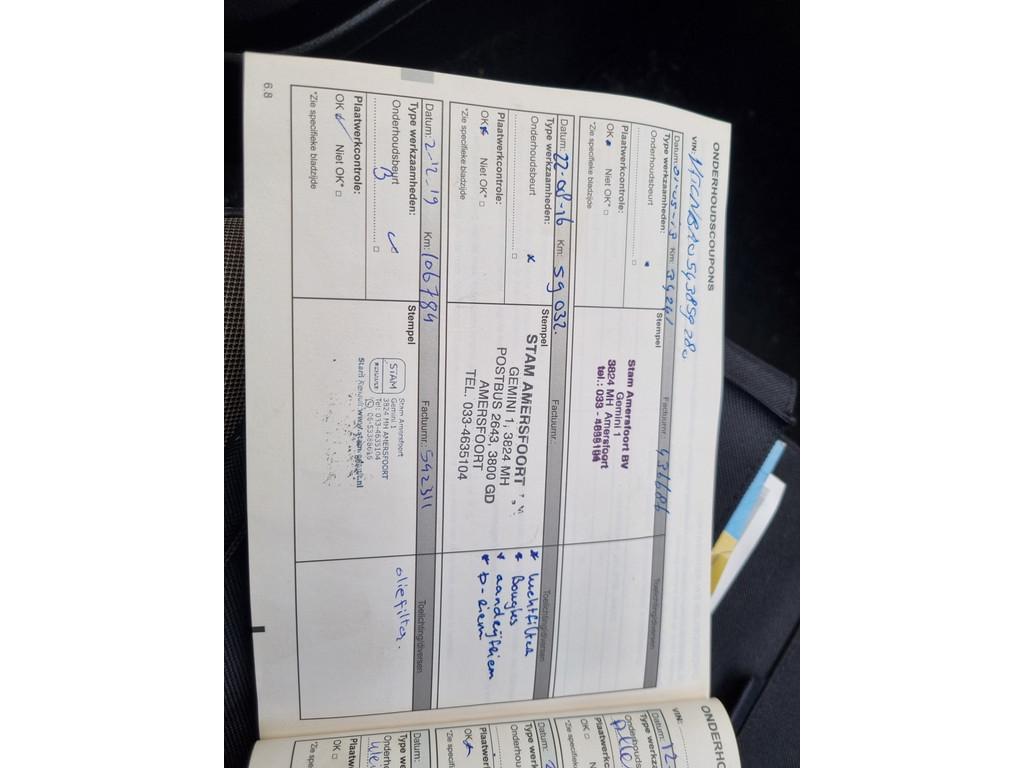 ONDERHOUDSCOUPONS
VIN:
Datum: Km: Factuurnr.: 436686 Toelichting/diversen
Type werkzaamheden: Stempel
Onderhoudsbeurt
Plaatwerkcontrole:
OK Niet OK* □
*Zie specifieke bladzijde
Stam Amersfoort BV
Gemini 1
3824 MH Amersfoort
tel.: 033 - 4635104
Datum: 22-08-16 Km: 59 032. Factuurnr.: Toelichting/diversen
Type werkzaamheden: Stempel
Onderhoudsbeurt x
Plaatwerkcontrole:
OK x Niet OK* □
*Zie specifieke bladzijde
STAM AMERSFOORT
GEMINI 1, 3824 MH
POSTBUS 2643, 3800 GD
AMERSFOORT
TEL. 033-4635104
* luchtfilter
* Bougies
* aandrijfriem
* D-riem
Datum: 2-12-19 Km: 106784 Factuurnr.: 592311 Toelichting/diversen
Type werkzaamheden: Stempel
Onderhoudsbeurt
B
Plaatwerkcontrole:
OK Niet OK* □
*Zie specifieke bladzijde
STAM
RENAULT
Stam Amersfoort
Gemini 1
3824 MH AMERSFOORT
Tel: 033-4635104
oliefilter.
6.8
ONDERH
VIN:
Datum: 12-
Type werkz
Onderhouds
Plaatwerk
OK □
*Zie specifie
Datum:
Type we
Onderho
Plaatwer
OK
*Zie speci
Datum:
Type w
Onderh
Plaatw
OK □
*Zie sp